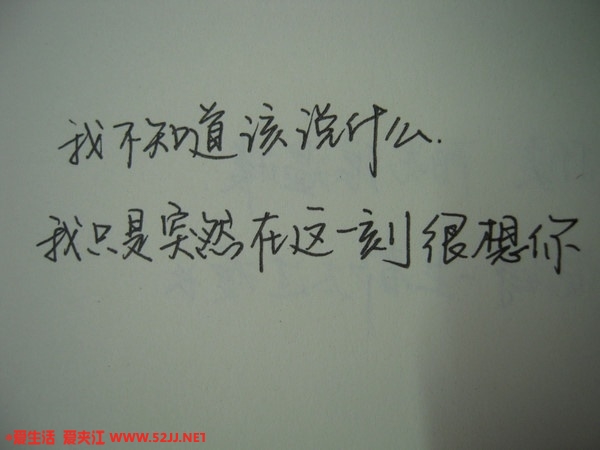 我不知道该说什么.
我只是突然在这一刻很想你
爱生活 爱夹江 WWW.52JJ.NET